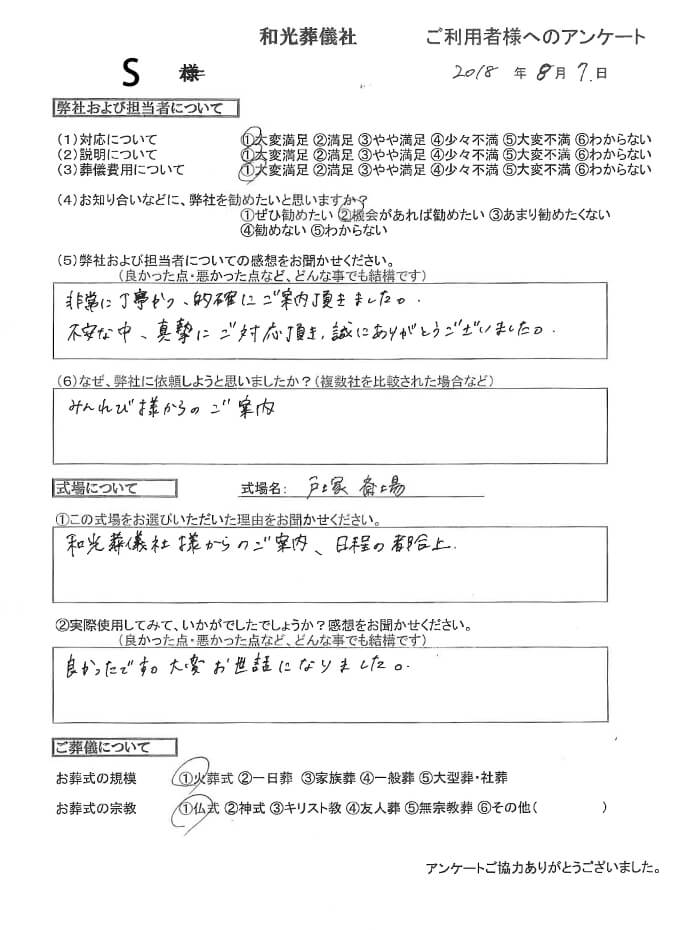 和光葬儀社 ご利用者様へのアンケート
S 様 2018 年 8 月 7. 日
弊社および担当者について
(1)対応について ①大変満足 ②満足 ③やや満足 ④少々不満 ⑤大変不満 ⑥わからない
(2)説明について ①大変満足 ②満足 ③やや満足 ④少々不満 ⑤大変不満 ⑥わからない
(3)葬儀費用について ①大変満足 ②満足 ③やや満足 ④少々不満 ⑤大変不満 ⑥わからない
(4)お知り合いなどに、弊社を勧めたいと思いますか?
①ぜひ勧めたい ②機会があれば勧めたい ③あまり勧めたくない
④勧めない ⑤わからない
(5)弊社および担当者についての感想をお聞かせください。
(良かった点・悪かった点など、どんな事でも結構です)
非常に丁寧かつ、的確にご案内頂きました。
不安な中、真摯にご対応頂き、誠にありがとうございました。
(6)なぜ、弊社に依頼しようと思いましたか?(複数社を比較された場合など)
みんれび様からのご案内
式場について 式場名: 戸塚斎場
①この式場をお選びいただいた理由をお聞かせください。
和光葬儀社様からのご案内、日程の都合上.
②実際使用してみて、いかがでしたでしょうか?感想をお聞かせください。
(良かった点・悪かった点など、どんな事でも結構です)
良かったです。大変お世話になりました。
ご葬儀について
お葬式の規模 ①火葬式 ②一日葬 ③家族葬 ④一般葬 ⑤大型葬・社葬
お葬式の宗教 ①仏式 ②神式 ③キリスト教 ④友人葬 ⑤無宗教葬 ⑥その他( )
アンケートご協力ありがとうございました。